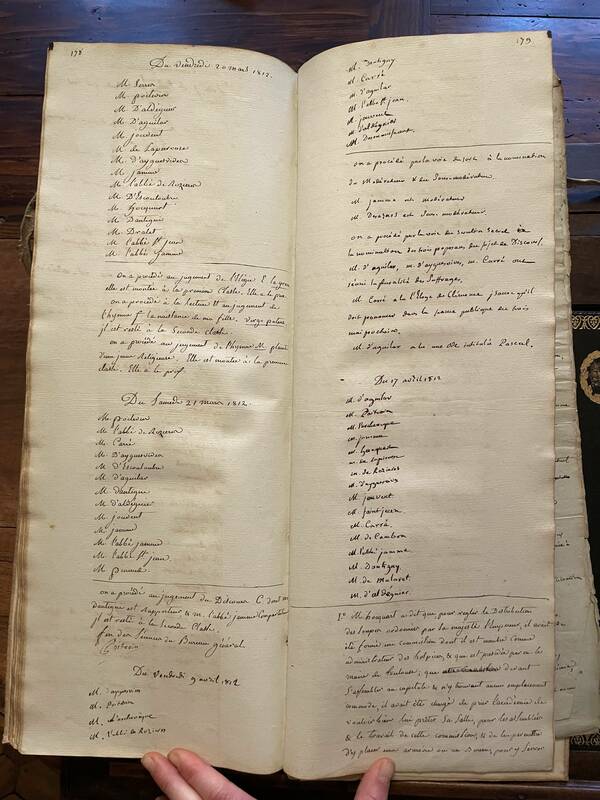 178
Du Vendredi 20 mars 1812.
M. Serres
M. poitevin
M. D'aldéguier
M. D'aguilar
M. jouvent
M. de Lapeyrouse
M. d'ayguesvives
M. jamme
M. l'abbé de Rozieres
M. D'Escouloubre
M. hocquart
M. Dantigny
M. Dralet
M. l'abbé St jean
M. l'abbé jamme
on a procédé au jugement de l'Elégie E.
elle est montée à la premiere Classe. Elle a le prix
on a procédé à la lecture et au jugement de
l'hymne f. la naissance de ma fille,
jl est resté à la Seconde classe.
on a procédé au jugement de l'hymne M.
d'une jeune Religieuse. Elle est montée à la premiere
classe. Elle a le prix.
Du Samedi 21 mars 1812.
M. poitevin
M. l'abbé de Rozieres
M. Carré
M. D'ayguesvives
M. d'Escouloubre
M. d'aguilar
M. dantigny
M. d'aldéguier
M. jouvent
M. jamme
M. l'abbé jamme
M. l'abbé St jean.
M.
on a procédé au jugement du Discours C. dont m.
dantigny est rapporteur & m. l'abbé jamme
jl est resté à la Seconde Classe.
fin des Séances du Bureau général
Poitevin
Du Vendredi 9 avril 1812
M. d'aygesvives
M. Poitevin
M.
M. l'abbé de Rozieres
179
M. Dantigny
M. Carré
M. d'aguilar
M. l'abbé St jean.
M. jouvent
M. d'aldéguier
M.
on a procédé par la voie du sort à la nomination
du Modérateur & du Sous-modérateur.
M. jamme est modérateur
M. est Sous-modérateur.
on a procédé par la voie du Scrutin Secret à
la nomination des trois proposans du sujet de Discours.
M. d'aguilar, m. d'ayguesvives, m. Carré ont
réuni la pluralité des Suffrages.
M. Carré a l'Eloge de Clémence jSaure qu'il
doit prononcer dans la séance publique du trois
mai prochain.
M. d'aguilar a lu une Ode intitulée Pascal.
Du 17 avril 1812
M. d'aguilar
M. Poitevin
M.
m. jamme
m. hocquart
m. de Lapeyrouse
m. de Rozieres
M. d'ayguesvives
M. jouvent
M. Saint jean
M. Carré.
M. de Cambon
M. l'abbé jamme.
M. Dantigny.
M. de Malaret
M. d'aldéguier
1.° M. hocquart a dit que pour regler la Distribution
des soupes ordonnée par Sa Majesté l'Empereur, il avait
été formé une commission dont il est membre comme
administrateur des hospices, & qui est présidée par m. le
maire de toulouse; que devant
S'assembler au capitole & n'y trouvant aucun emplacement
commode, il avait été chargé de prier l'académie de
vouloir bien lui prêter Sa Salle, pour les assemblées
& le travail de cette commission, & de lui permettre
d'y placer une armoire ou un Bureau, pour y serrer